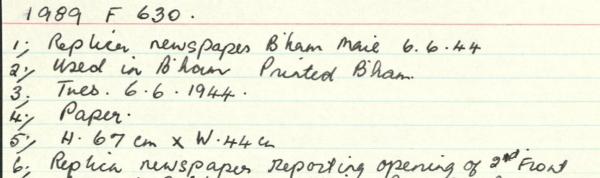 1989 F 630.
1; Replica newspaper B'ham Maie 6.6.44
2; Used in B'ham Printed B'ham.
3. Tues. 6.6.1944.
4; Paper.
5; H. 67 cm x W. 44 cm
6. Replica newspaper reporting opening of 2nd Front